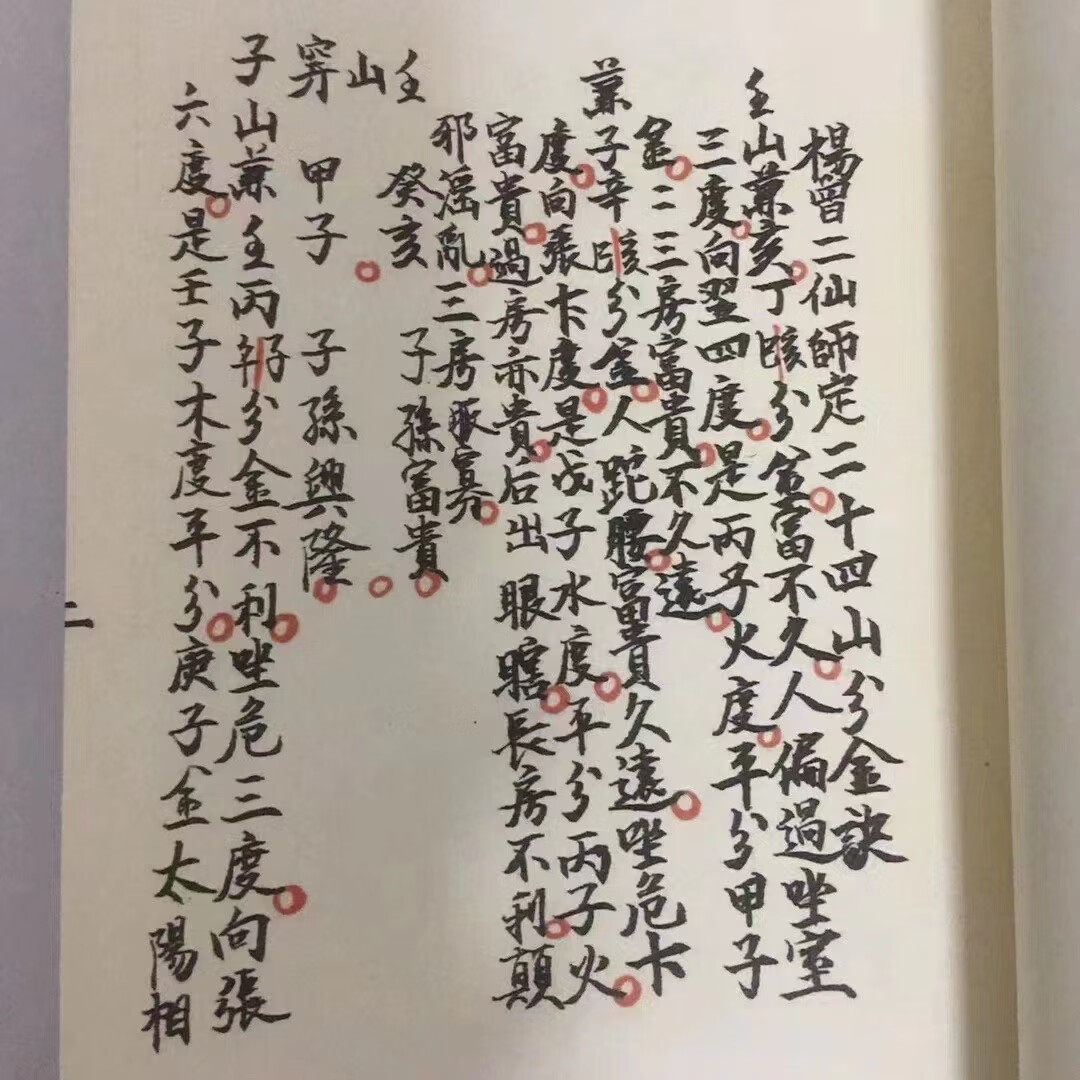 楊曾二仙師定二十四山分金訣
壬山兼亥丁巳亥分金富不久人偏過坐室
三度向翌四度是丙子火度平分甲子
金二三房富貴不久遠
兼子辛巳亥分金人跎腰富貴久遠坐危卡
度向張卡度是戊子水度平分丙子火
富貴過房亦貴后出眼瞎長房不利顛
邪淫亂三房敗寡
壬山
癸亥 子孫富貴
穿甲子 子孫興隆
子山兼壬丙午子分金不利坐危三度向張
六度是壬子木度平分庚子金太陽相
二